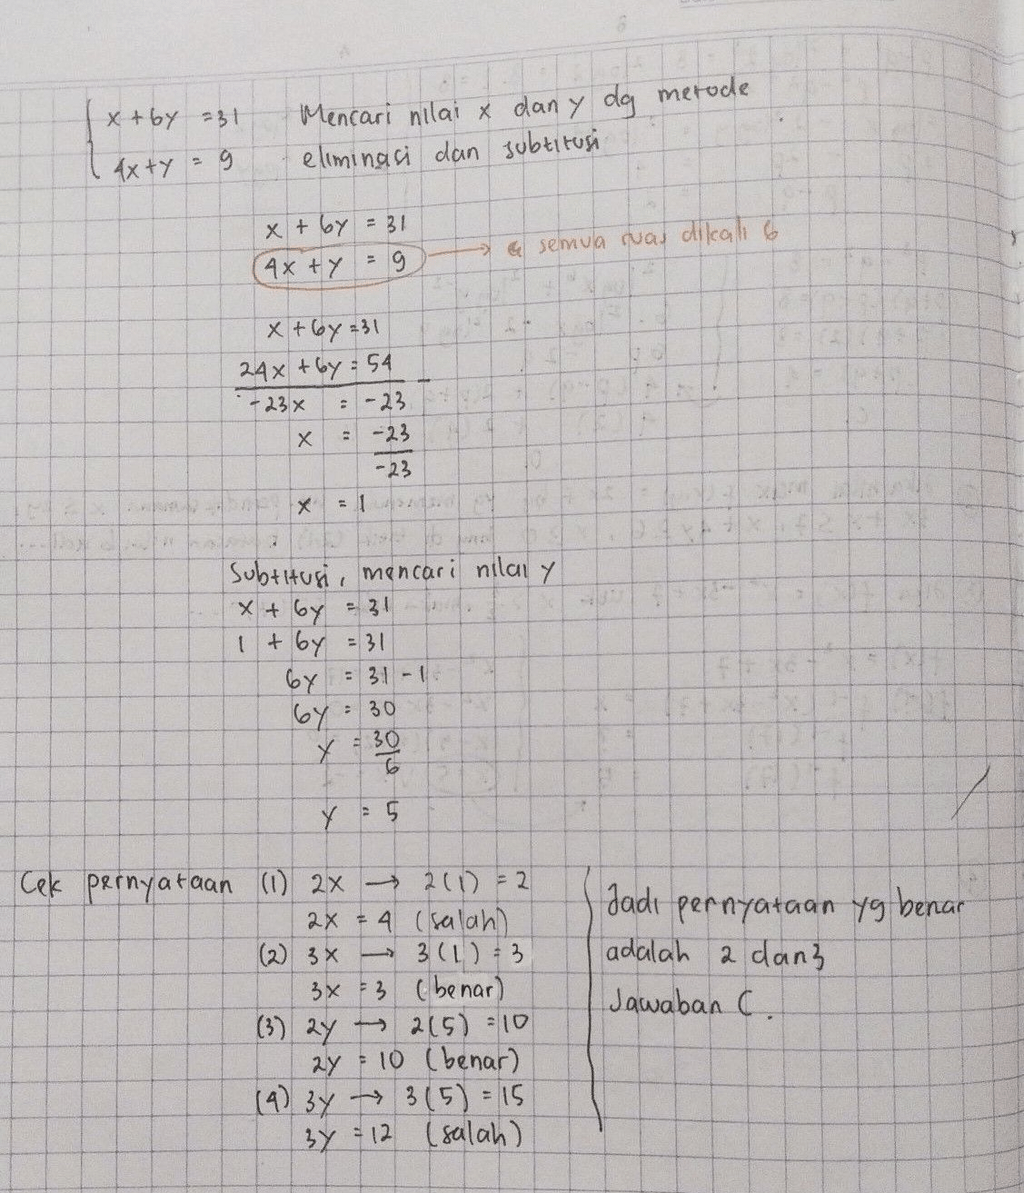 x + 6y = 31 Mencari nilai x dan y dg metode
4x + y = 9 eliminasi dan subtitusi
x + 6y = 31
4x + y = 9 → semua ruas dikali 6
x + 6y = 31
24x + 6y = 54 -
-23x = -23
x = -23
-23
x = 1
Subtitusi, mencari nilai y
x + 6y = 31
1 + 6y = 31
6y = 31 - 1
6y = 30
y = 30
6
y = 5
Cek pernyataan (1) 2x → 2(1) = 2
2x = 4 (salah)
(2) 3x → 3(1) = 3
3x = 3 (benar)
(3) 2y → 2(5) = 10
2y = 10 (benar)
(4) 3y → 3(5) = 15
3y = 12 (salah)
Jadi pernyataan yg benar
adalah 2 dan 3
Jawaban C.